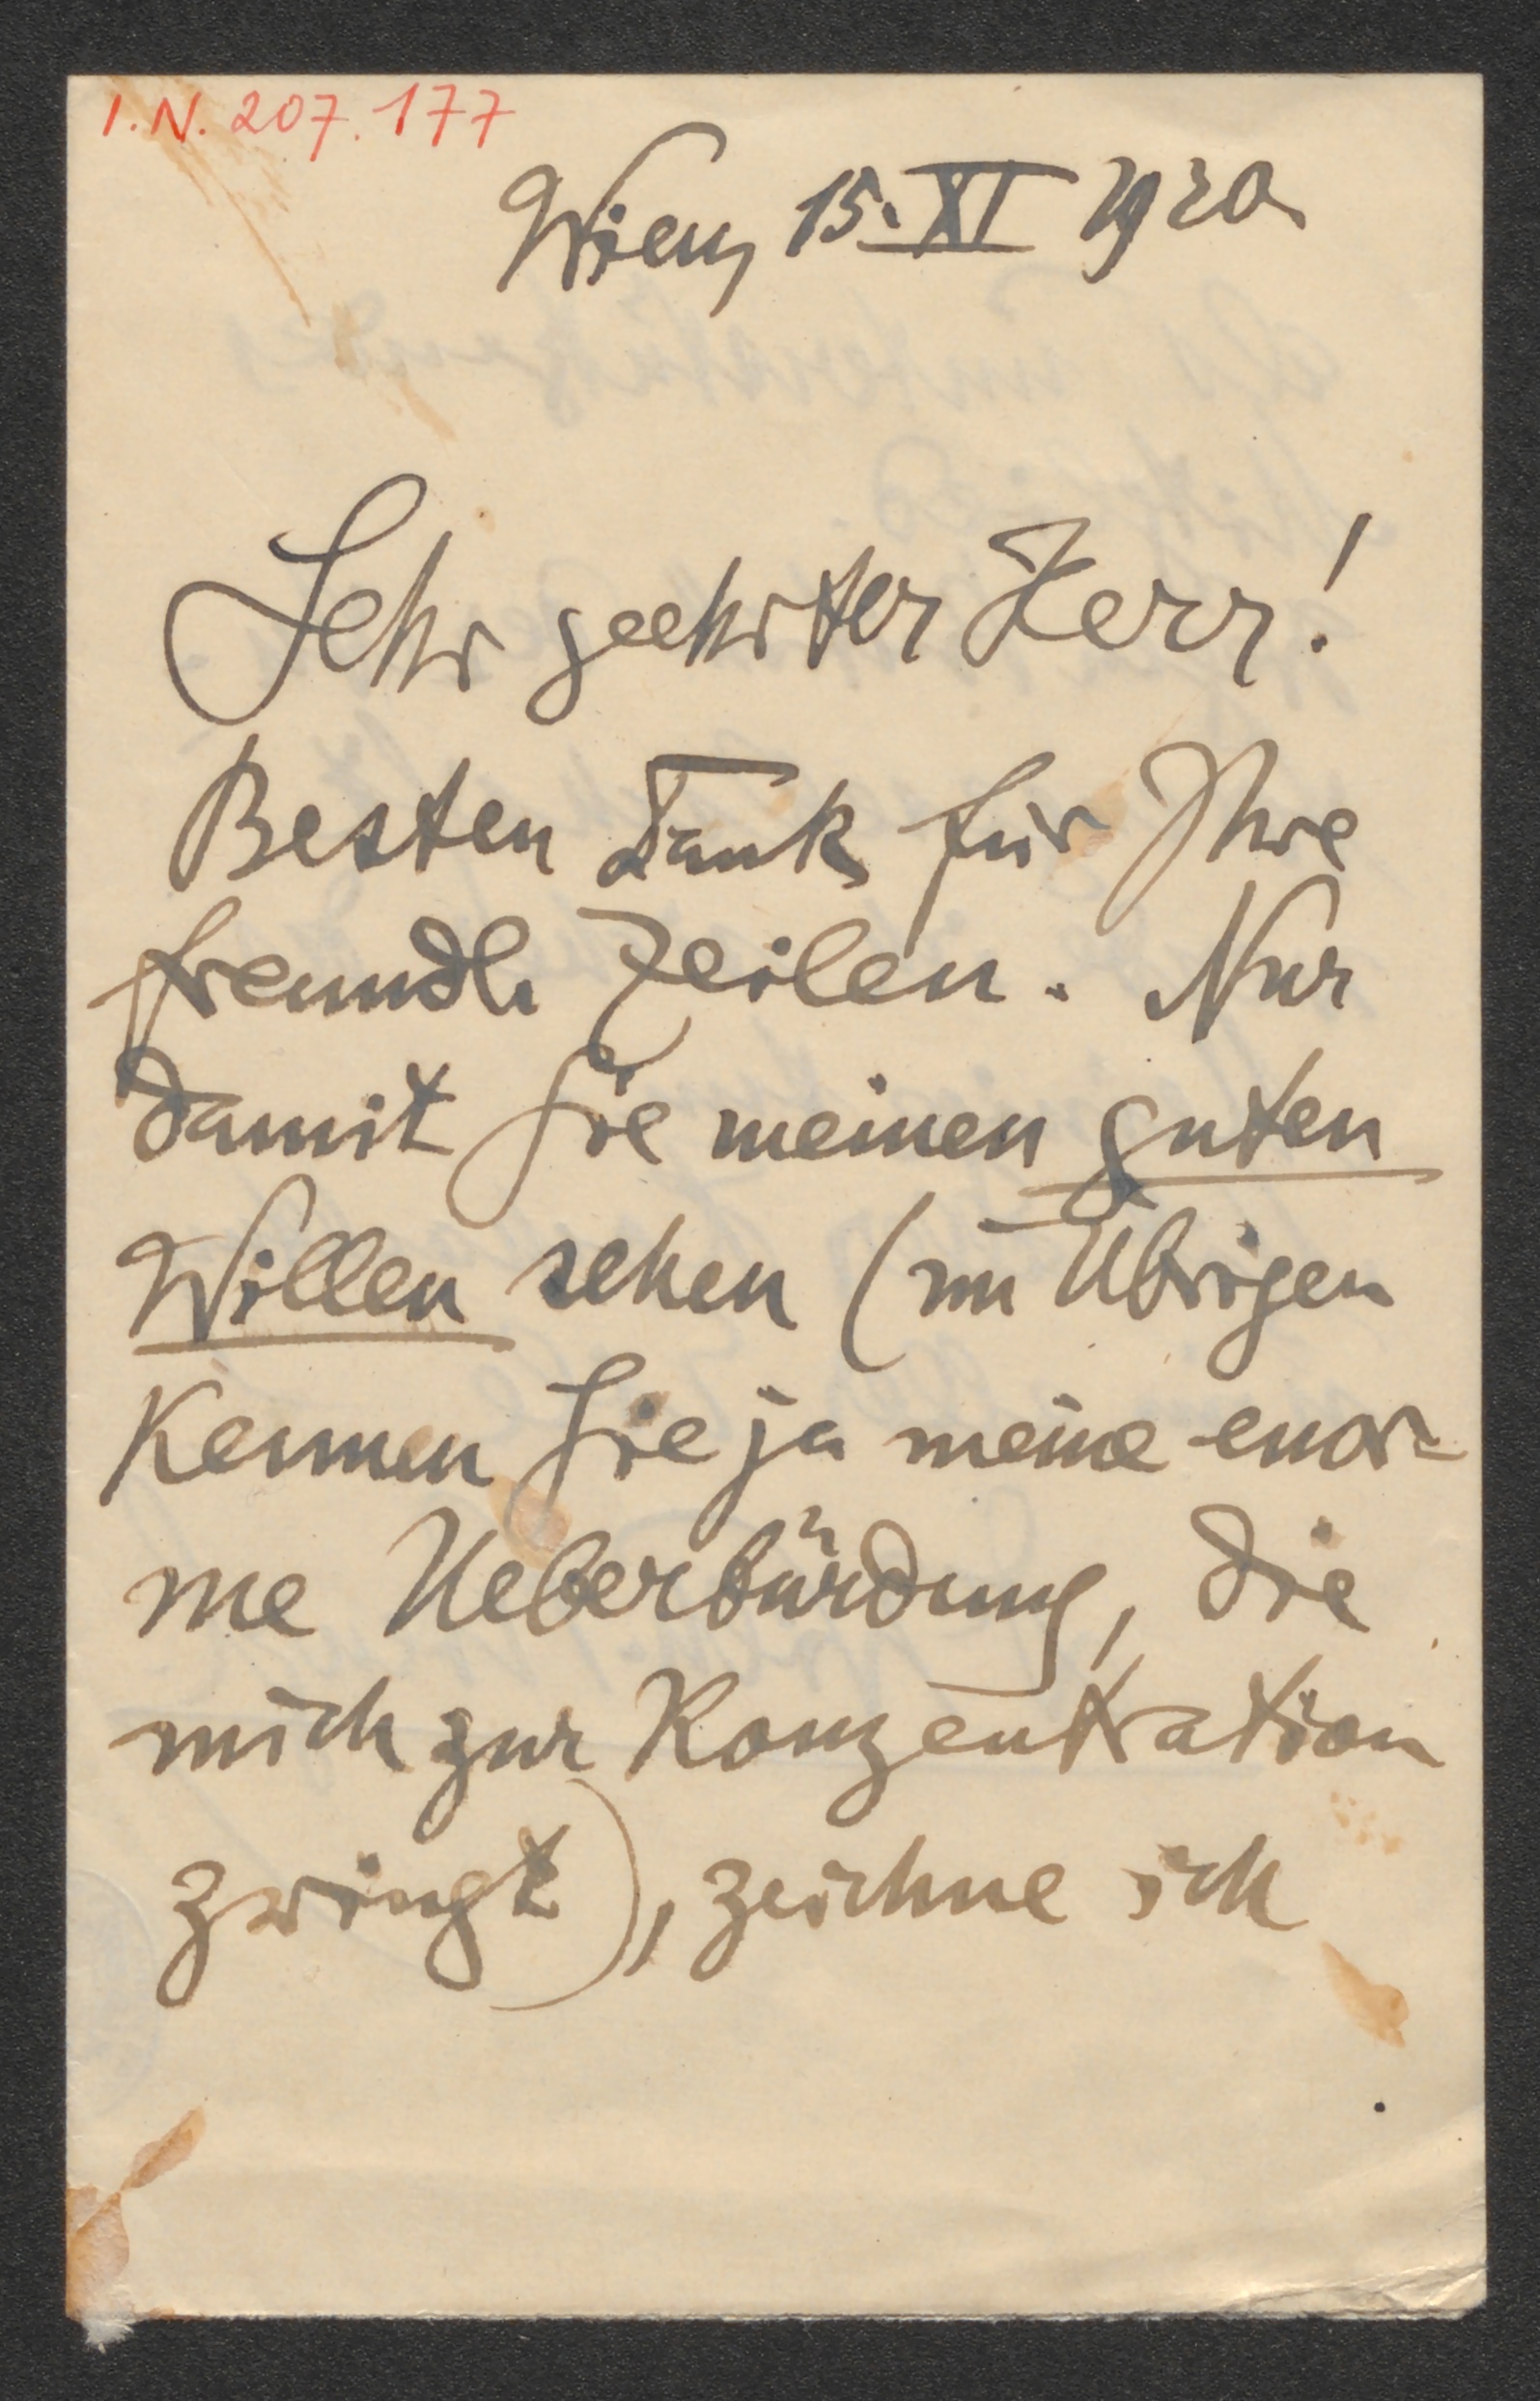 I.N. 207.177
Wien, 15. XI 1920
Sehr geehrter Herr!
Besten Dank für Ihre
freundl. Zeilen. Nur
damit Sie meinen guten
Willen sehen (im Übrigen
kennen Sie ja meine enor-
me Ueberbürdung, die
mich zur Konzentration
zwingt), zeichne ich